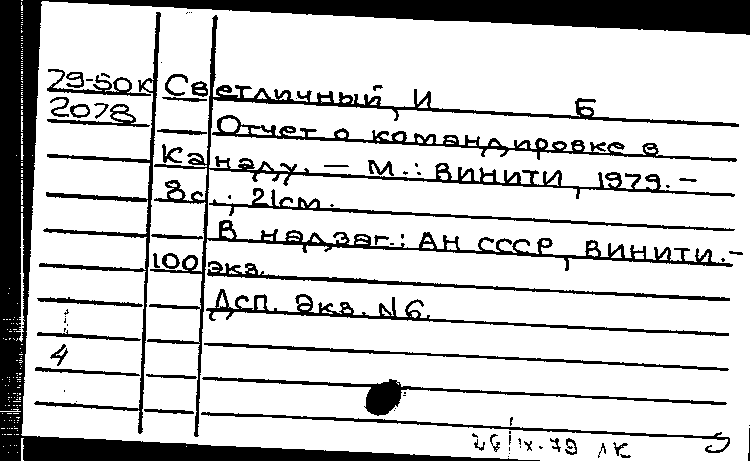 79-50к Светличный, И Б
2078 Отчет о командировке в
Канаду. — М.: ВИНИТИ, 1979. -
8с.; 21см.
В надзаг.: АН СССР, ВИНИТИ. -
100 экз.
Дсп. Экз. N6.
4
26/IX-79 ЛК